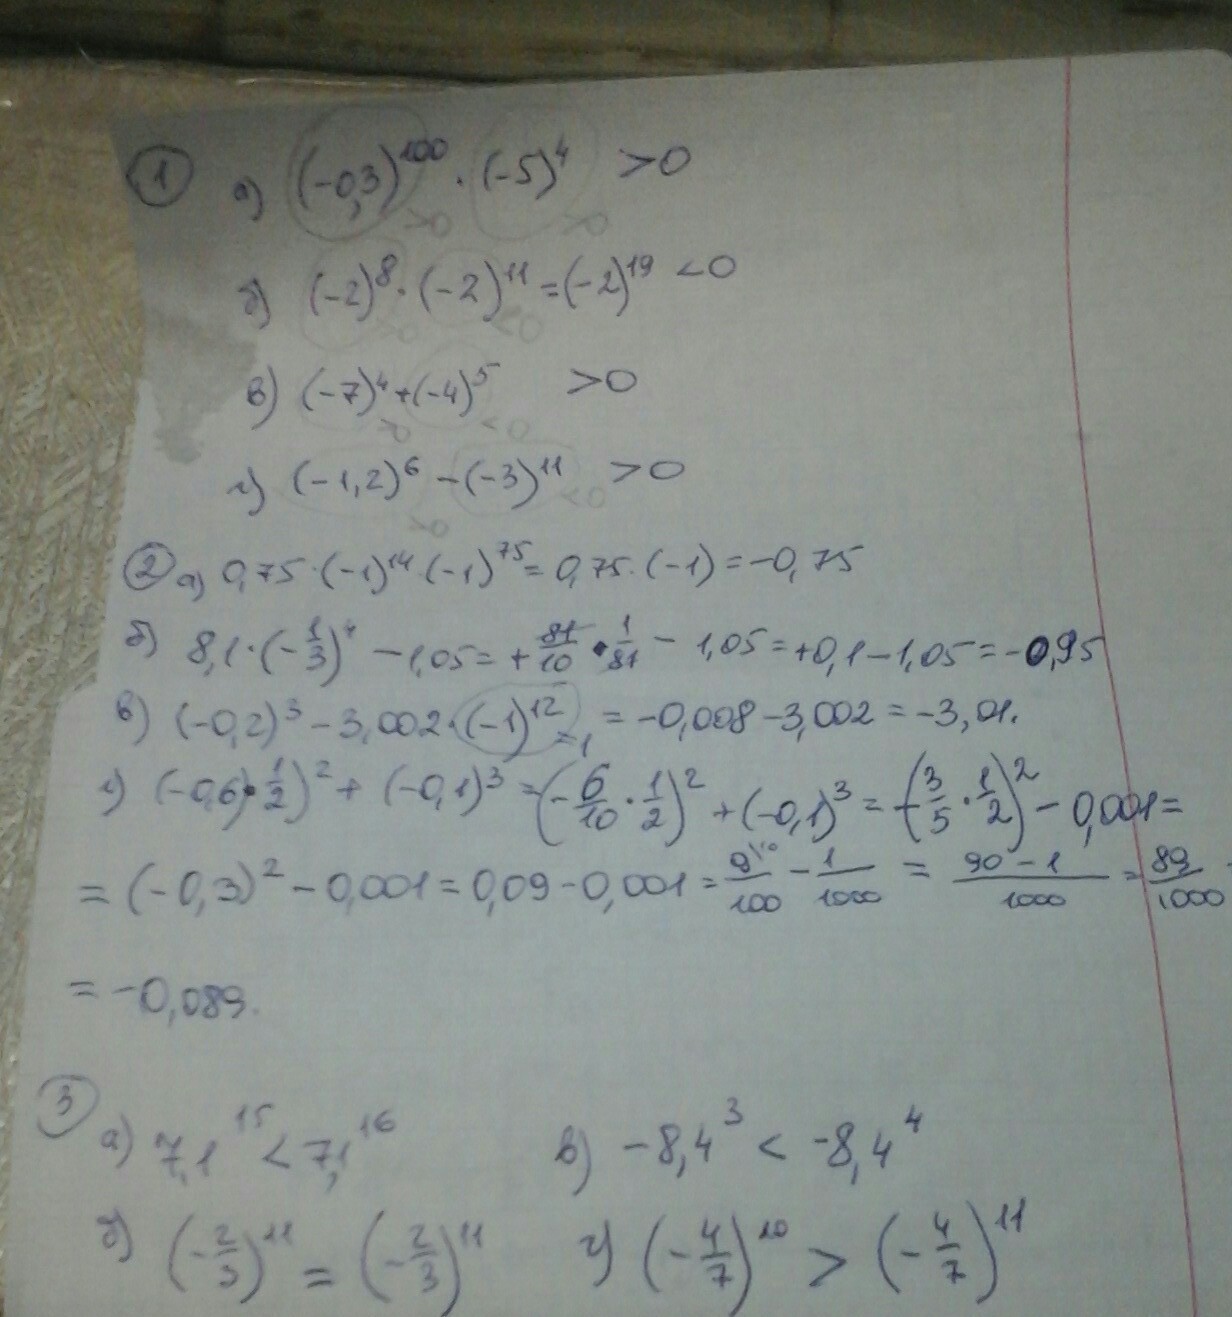 1 а) (-0,3)^100 · (-5)^4 >0
>0 >0
б) (-2)^8 · (-2)^11 = (-2)^19 <0
>0 <0
в) (-7)^4 + (-4)^5 >0
>0 <0
г) (-1,2)^6 - (-3)^11 >0
>0 <0
2 а) 0,75 · (-1)^14 · (-1)^75 = 0,75 · (-1) = -0,75
б) 8,1 · (-1/3)^4 - 1,05 = + 81/10 · 1/81 - 1,05 = +0,1 - 1,05 = -0,95
в) (-0,2)^3 - 3,002 · (-1)^12 =1 = -0,008 - 3,002 = -3,01.
г) (-0,6 · 1/2)^2 + (-0,1)^3 = (-6/10 · 1/2)^2 + (-0,1)^3 = (-3/5 · 1/2)^2 - 0,001 =
= (-0,3)^2 - 0,001 = 0,09 - 0,001 = 9\10/100 - 1/1000 = 90-1/1000 = 89/1000
= -0,089.
3 а) 7,1^15 < 7,1^16 в) -8,4^3 < -8,4^4
б) (-2/3)^11 = (-2/3)^11 г) (-4/7)^10 > (-4/7)^11